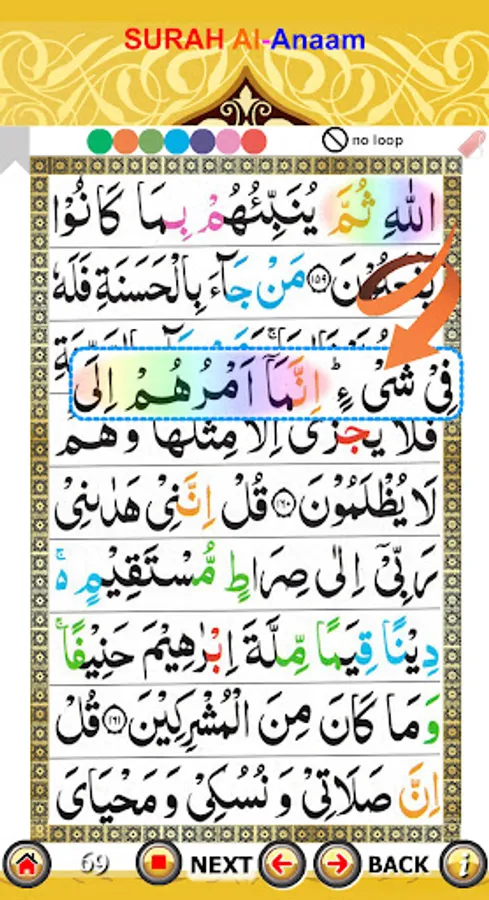 SURAH Al-Anaam
no loop
اللهِ ثُمَّ يُنَبِّئُهُمْ بِمَا كَانُوْا
يَفْعَلُوْنَ ۝۱۵۹ مَنْ جَآءَ بِالْحَسَنَةِ فَلَهٗ
فِیْ شَیْءٍ ؕ اِنَّمَاۤ اَمْرُهُمْ اِلَی
فَلَا یُجْزٰۤی اِلَّا مِثْلَهَا وَهُمْ
لَا یُظْلَمُوْنَ ۝۱۶۰ قُلْ اِنَّنِیْ هَدٰىنِیْ
رَبِّیْۤ اِلٰی صِرَاطٍ مُّسْتَقِیْمٍ ۚ۵
دِیْنًا قِیَمًا مِّلَّةَ اِبْرٰهِیْمَ حَنِیْفًا ۚ
وَمَا كَانَ مِنَ الْمُشْرِكِیْنَ ۝۱۶۱ قُلْ
اِنَّ صَلَاتِیْ وَنُسُكِیْ وَمَحْیَایَ
69 NEXT BACK i